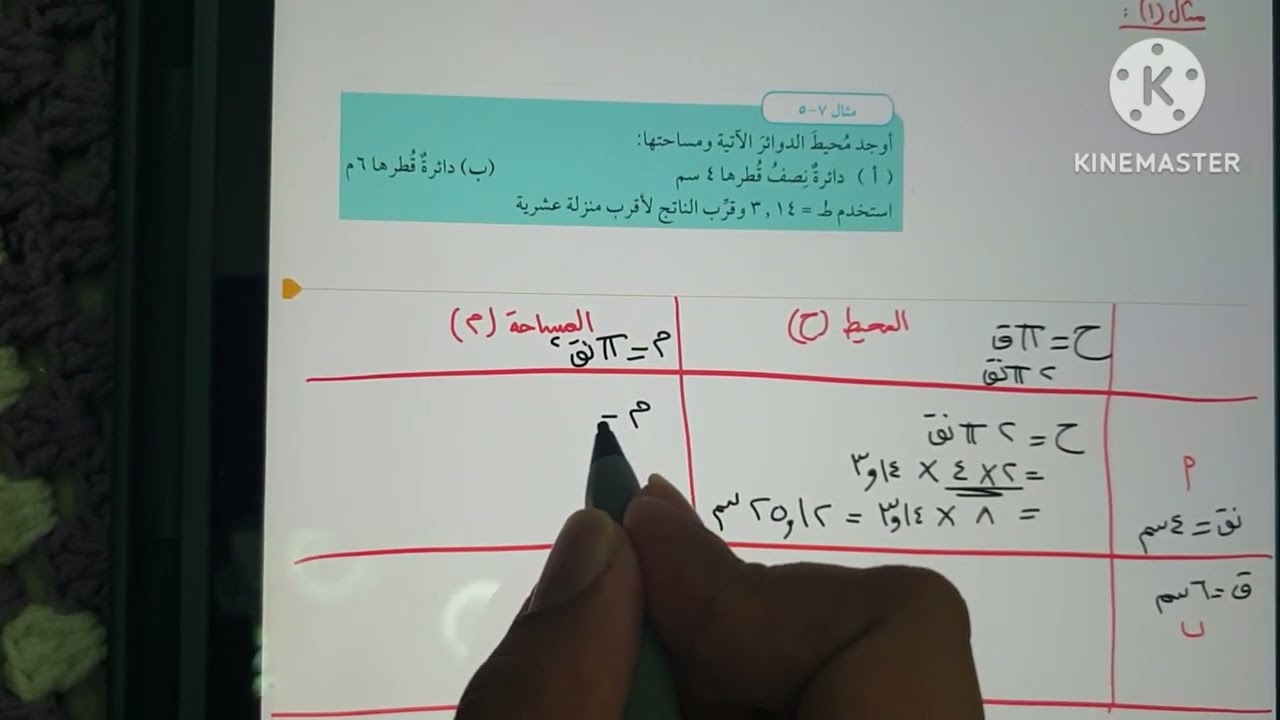 مثال (١) :
KINEMASTER
مثال ٧-٥
أوجد مُحيطَ الدوائرَ الآتية ومساحتها:
( أ ) دائرةٌ نِصفُ قُطرها ٤ سم
(ب) دائرةٌ قُطرها ٦ م
استخدم ط = ٣,١٤ وقرِّب الناتج لأقرب منزلة عشرية
المحيط (ح)
ح = π ق
٢ π نق
المساحة (م)
م = π نق²
م
نق = ٤ سم
ح = ٢ π نق
= ٢ × ٤ × ٣,١٤
= ٨ × ٣,١٤ = ٢٥,١٢ سم
م =
ق = ٦ سم
ب